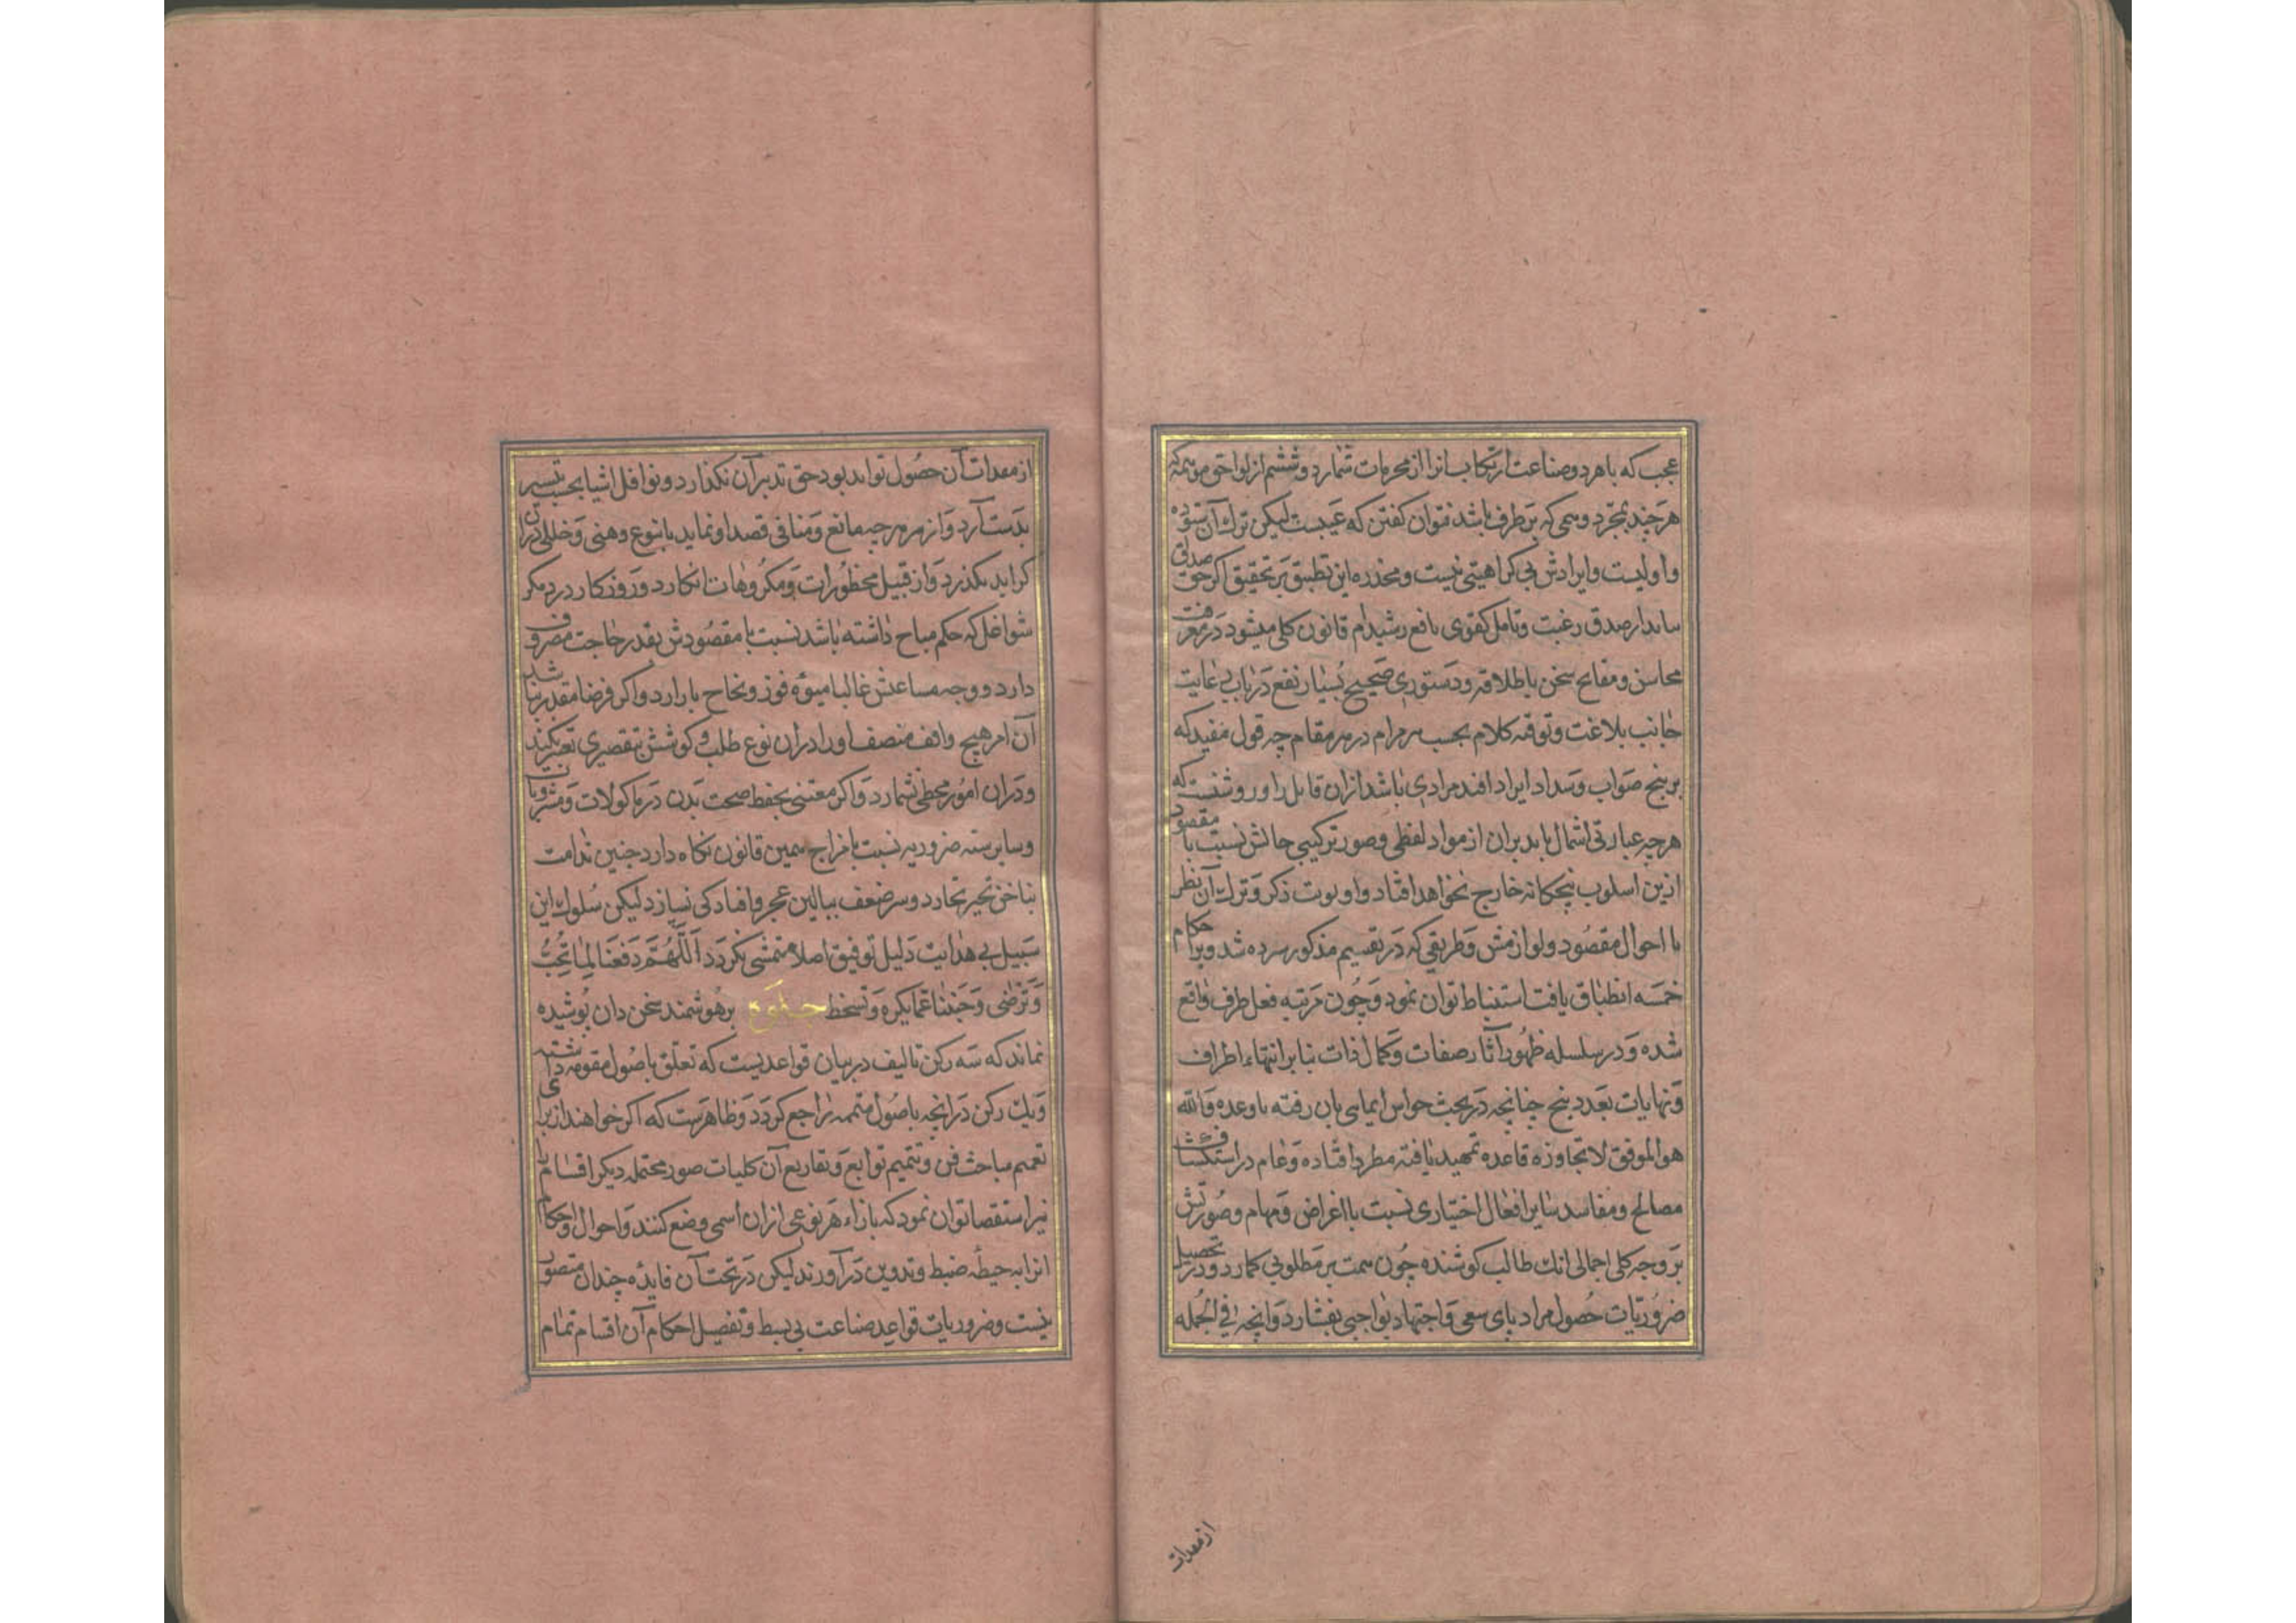 عجب که باهر دو صناعت ارتکاب انرا از محرمات شمارد و ششم از لواحق موتمه که
هرچند بمجرد وسمی که بر طرف باشد نتوان کفتن که عیبست لیکن ترک آن ستوده
و اولیست و ایرادش بی کراهیتی نیست و مخدره این تطبیق بر تحقیق اکر حق صدق
صدق رغبت و تامل کفوی یا فع رشیدام قانون کلی میشود در معرفت
محاسن و مقابح سخن باطلاقه و دستوری صحیح بسیار نفع در باب رعایت
جانب بلاغت و توفیه کلام بحسب هر مرام در هر مقام چه قول مفید که
بر نهج صواب و سداد ایراد افتد مرادی باشد ازان قایل را و روشنست که
هرچه عبارتی اشمال یابد بران از مواد لفظی و صور ترکیبی حالش نسبت با مقصود
ازین اسلوب پنجکانه خارج نخواهد افتاد و اولویت ذکر و ترک آن نظر
با احوال مقصود و لوازمش و طریقی که در تقسیم مذکور سپرده شد و برا حکام
خمسه انطباق یافت استنباط توان نمود و چون مرتبه فعل طرف واقع
شده و در سلسله ظهور آثار صفات و کمال ذات بنابر انتهاء اطراف
و نهایات بعدد پنج چنانچه در بحث حواس ایمایی بان رفته باوعده والله
هو الموفق لا تجاوزه قاعده تمهید یافته مطرد افتاده و عام در استکشاف
مصالح و مفاسد سایر افعال اختیاری نسبت با اغراض و مهام و صورتش
بر وجه کلی اجمالی انک طالب کوشنده چون همت بر مطلوبی کمارد و در تحصیل
ضروریات حصول مراد پای سعی و اجتهاد بواجبی بفشارد و انچه فی الجمله
از معدات
از معدات آن حصول تواند بود حق تدبر آن نکذارد و نوافل اشیا بحسب تیسیر
بدست آرد و از هر هرچه مانع و منافی قصد او نماید یا بنوع وهنی و خللی دران
کراید بکذرد و از قبیل محظورات و مکروهات انکارد و روزکار در دیکر
شواغل که حکم مباح داشته باشد نسبت با مقصودش بقدر حاجت مصروف
دارد و وجه مساعیش غالبا میوه فوز و نجاح بار ارد و اکر فرضا مقدر نباشد
آن امر هیچ واقف منصف او را دران نوع طلب و کوشش بتقصیری تعییر نکند
و دران امور مخطی نشمارد و اکر معتنی بحفظ صحت بدن در ماکولات و مشروبات
و سایر سته ضروریه نسبت با مزاج همین قانون نکاه دارد جنین ندامت
بناخن تحیر نخارد و سر ضعف ببالین عجز و افتادکی نسپارد لیکن سلوک این
سبیل بی هدایت دلیل توفیق اصلا متمشی نکردد اللهم وفقنا لما تحب
و ترضی و جنبنا عما یکره و تسخط جلوه بر هوشمند سخن دان پوشیده
نماند که سه رکن تالیف در بیان قواعدیست که تعلق باصول مقومه داشته
و یک رکن در انچه باصول متممه راجع کردد و ظاهرست که اکر خواهند از برای
تعمیم مباحث فن و تتمیم توابع و تفاریع آن کلیات صور محتمله دیکر اقسام را
نیز استقصا توان نمود که بازاء هر نوعی ازان اسمی وضع کنند و احوال و احکام
انرا به حیطه ضبط و تدوین در آورند لیکن در تحت آن فایده چندان متصور
نیست و ضروریات قواعد صناعت بی بسط و تفصیل احکام آن اقسام تمام